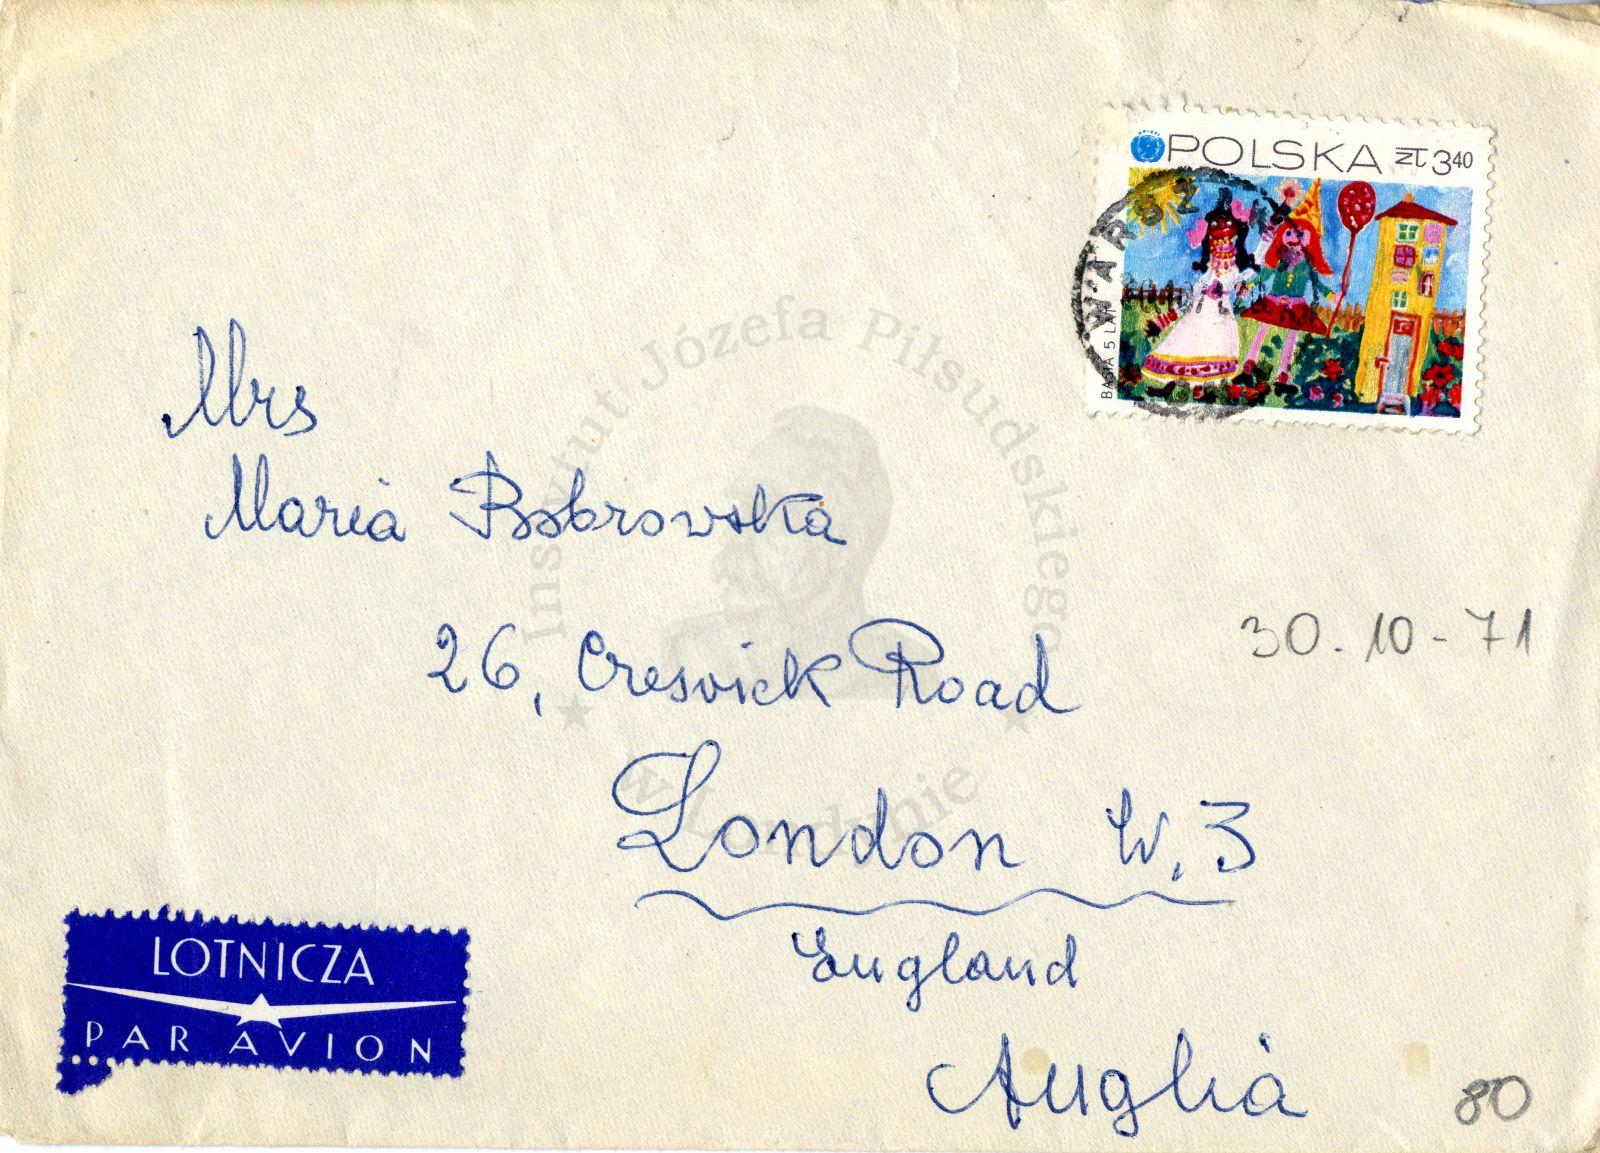 POLSKA ZŁ 3 40
BASIA 5 LAT
WARSZAWA
Mrs
Maria Bobrowska
26, Creswick Road
London W.3
England
Anglia
30.10-71
80
LOTNICZA
PAR AVION
Instytut Józefa Piłsudskiego
w Londynie